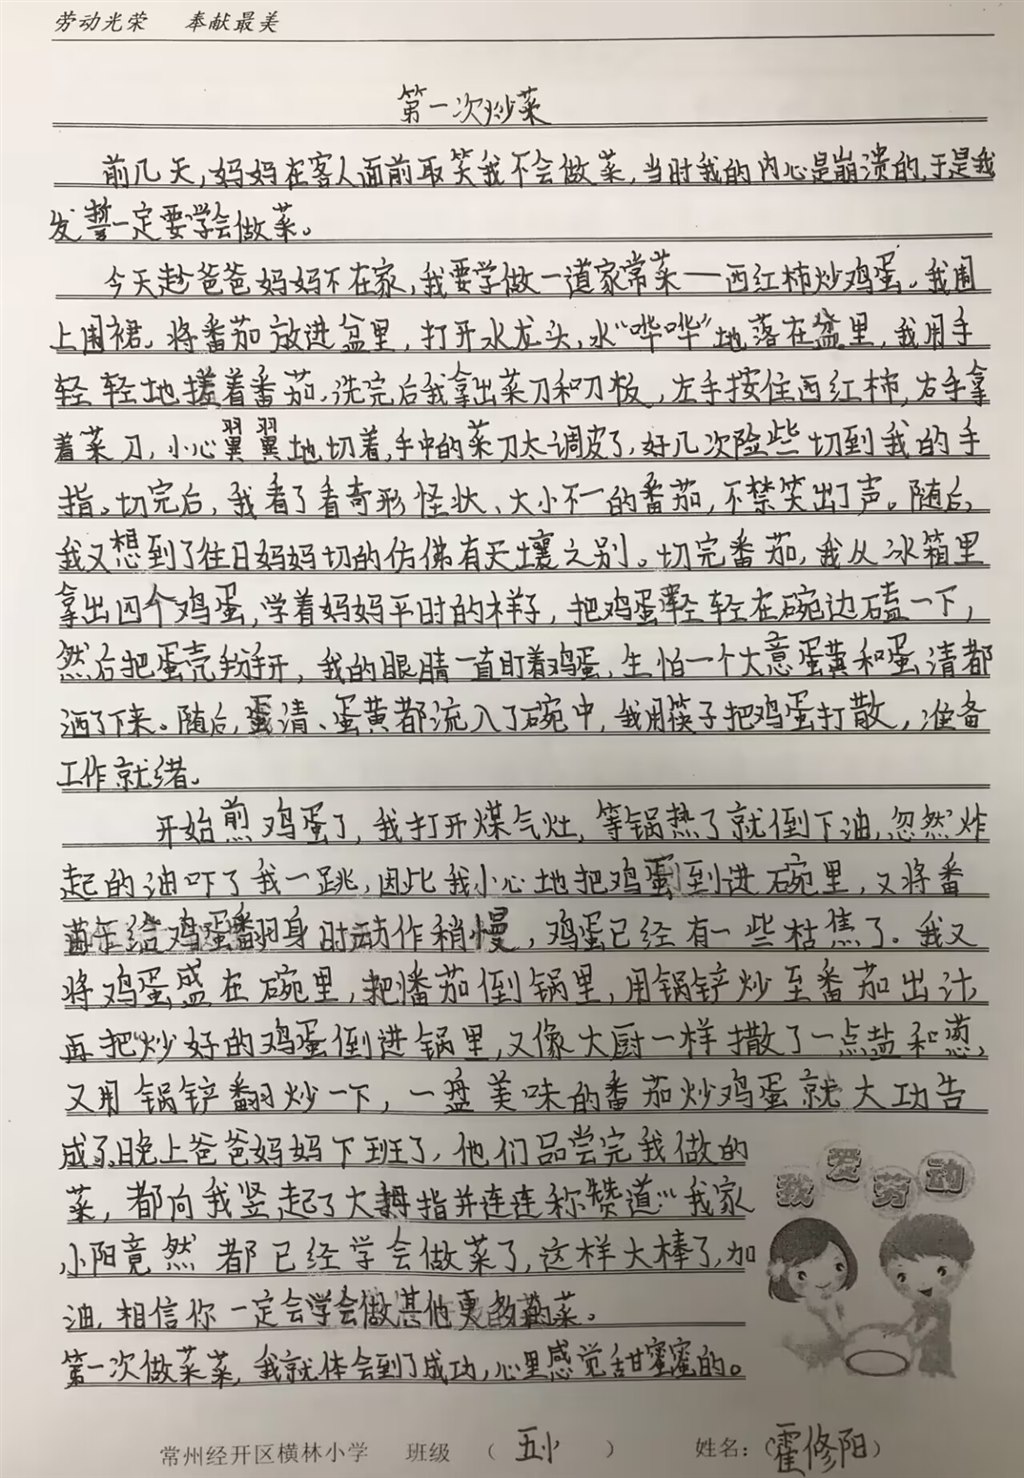 劳动光荣 奉献最美
第一次炒菜
前几天,妈妈在客人面前取笑我不会做菜,当时我的内心是崩溃的,于是我
发誓一定要学会做菜。
今天趁爸爸妈妈不在家,我要学做一道家常菜—西红柿炒鸡蛋。我围
上围裙,将番茄放进盆里,打开水龙头,水“哗哗”地落在盆里,我用手
轻轻地搓着番茄,洗完后我拿出菜刀和刀板,左手按住西红柿,右手拿
着菜刀,小心翼翼地切着,手中的菜刀太调皮了,好几次险些切到我的手
指。切完后,我看了看奇形怪状、大小不一的番茄,不禁笑出了声。随后,
我又想到了往日妈妈切的仿佛有天壤之别。切完番茄,我从冰箱里
拿出四个鸡蛋,学着妈妈平时的样子,把鸡蛋轻轻在碗边磕一下,
然后把蛋壳掰开,我的眼睛一直盯着鸡蛋,生怕一个大意蛋黄和蛋清都
洒了下来。随后,蛋清、蛋黄都流入了碗中,我用筷子把鸡蛋打散,准备
工作就绪。
开始煎鸡蛋了,我打开煤气灶,等锅热了就倒下油,忽然炸
起的油吓了我一跳,因此我小心地把鸡蛋到进碗里,又将番
给鸡蛋翻身时动作稍慢,鸡蛋已经有一些枯焦了。我又
将鸡蛋盛在碗里,把番茄倒锅里,用锅铲炒至番茄出汁,
再把炒好的鸡蛋倒进锅里,又像大厨一样撒了一点盐和葱,
又用锅铲翻炒一下,一盘美味的番茄炒鸡蛋就大功告
成了。晚上爸爸妈妈下班了,他们品尝完我做的
菜,都向我竖起了大拇指并连连称赞道:“我家
小阳竟然都已经学会做菜了,这样太棒了,加
油,相信你一定会学会做其他更多的菜。
第一次做菜菜,我就体会到了成功,心里感觉甜蜜蜜的。
我爱劳动
常州经开区横林小学 班级 ( 五小 ) 姓名:(霍修阳)